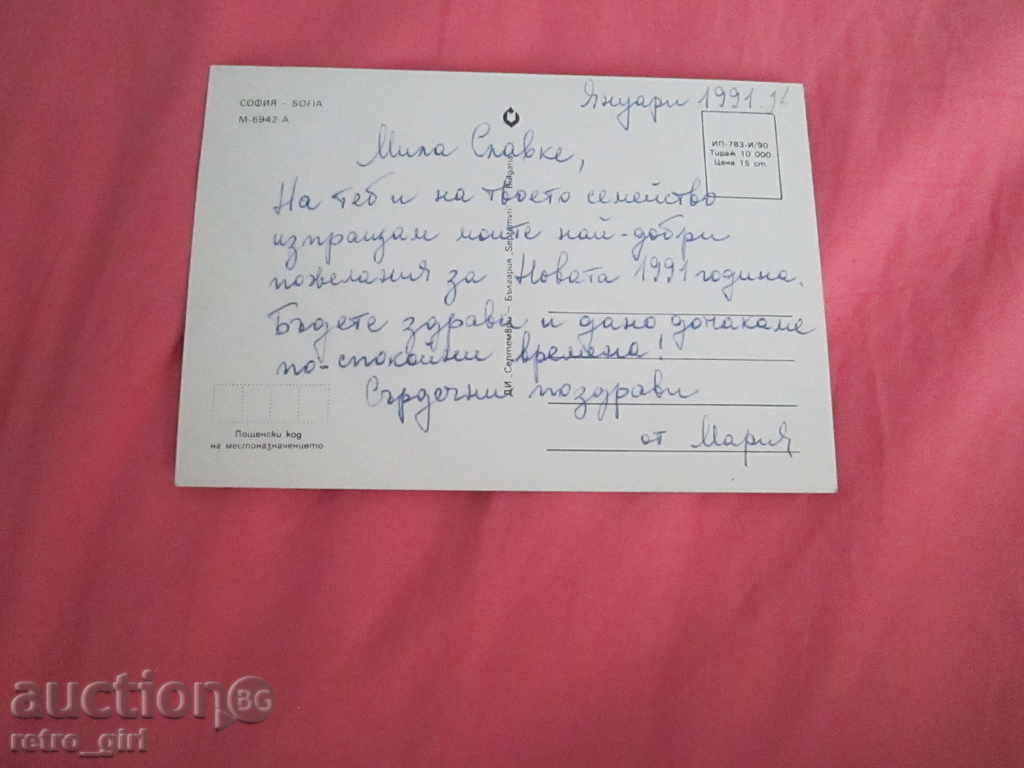 СОФИЯ - SOFIA
М-6942-А
Януари 1991 г.
ИП-783-И/90
Тираж 10 000
Цена 15 ст.
Мила Славке,
На теб и на твоето семейство
изпращам моите най-добри
пожелания за Новата 1991 година.
Бъдете здрави и дано дочакаме
по-спокойни времена!
Сърдечни поздрави
от Мария
ДИ „Септември" – България „Septemvri"
Пощенски код
на местоназначението
auction BG
retro__girl